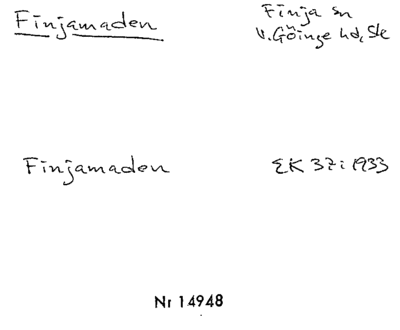 Finjamaden
Finja sn
V. Göinge hd, Sk
Finjamaden
EK 37:1933
Nr 14948